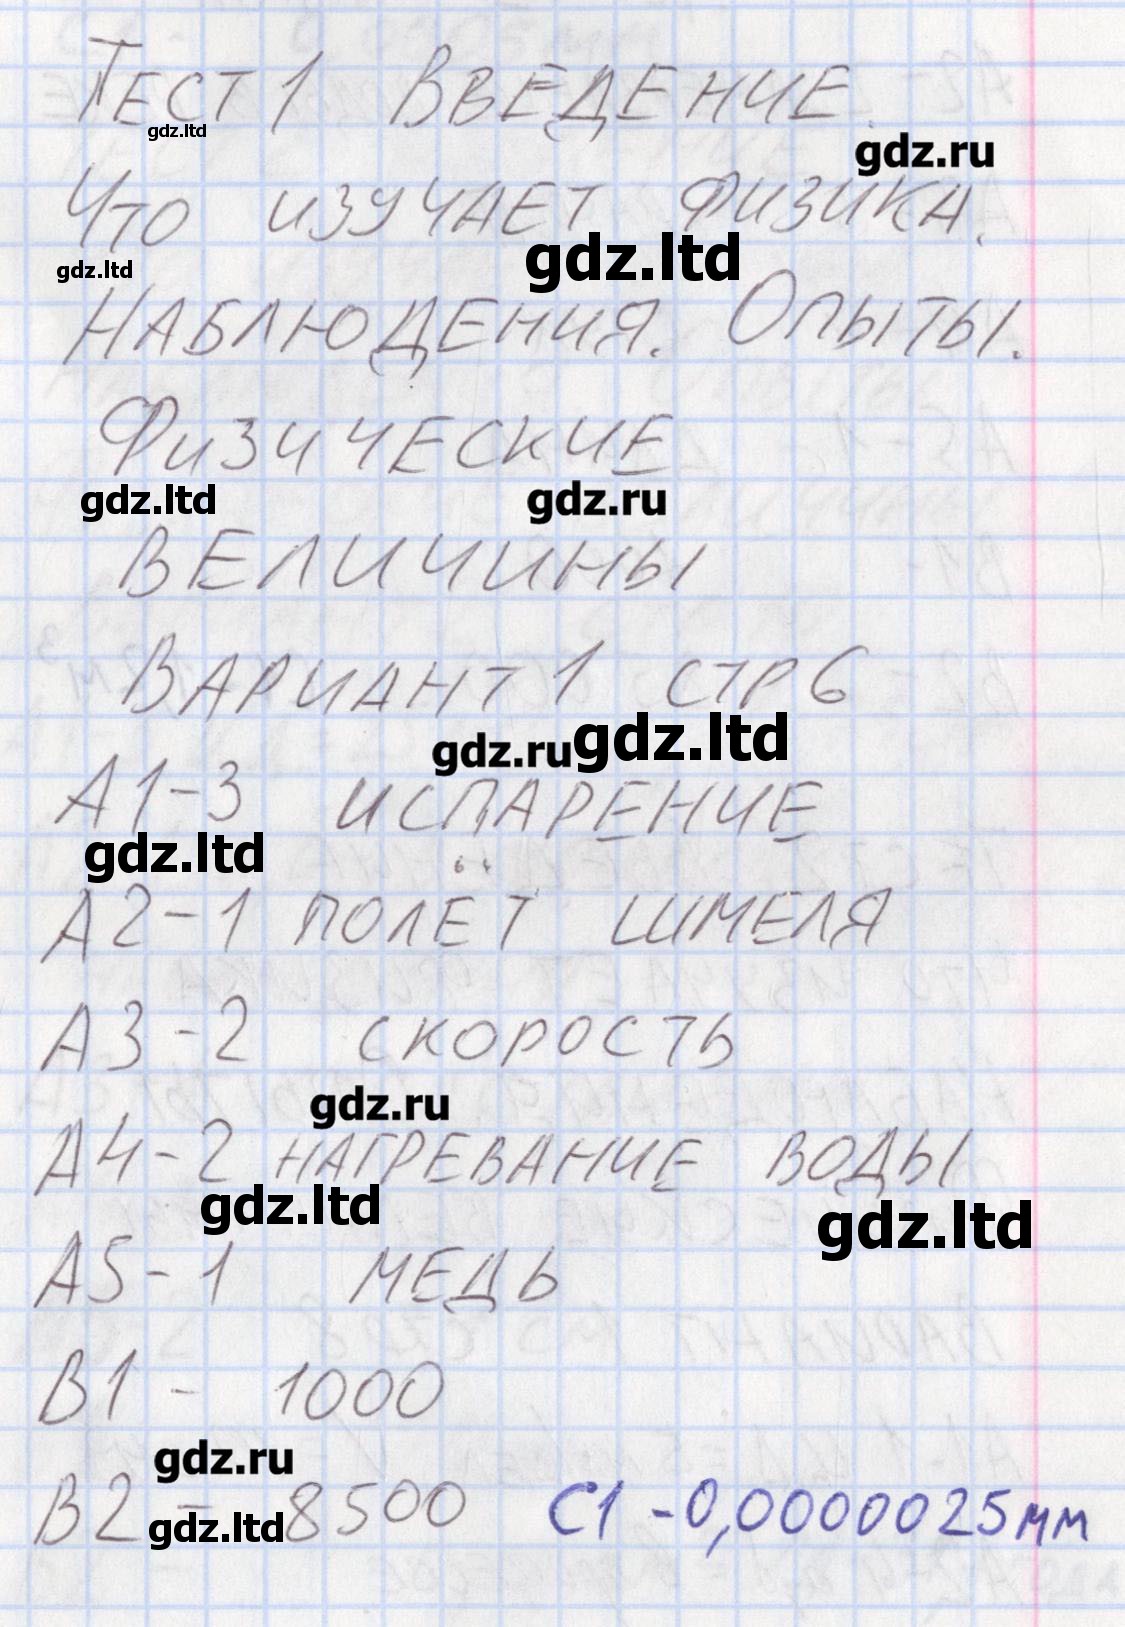 Тест 1 Введение.
gdz.ltd
gdz.ru
Что изучает физика.
gdz.ltd
gdz.ltd
Наблюдения. Опыты.
Физические
gdz.ltd
gdz.ru
величины
Вариант 1 стр 6
gdz.ru
gdz.ltd
А1-3 испарение
gdz.ltd
А2-1 полёт шмеля
А3-2 скорость
gdz.ru
А4-2 нагревание воды
gdz.ltd
gdz.ltd
А5-1 медь
В1 - 1000
gdz.ru
В2 - 8500 С1 - 0,0000025мм
gdz.ltd